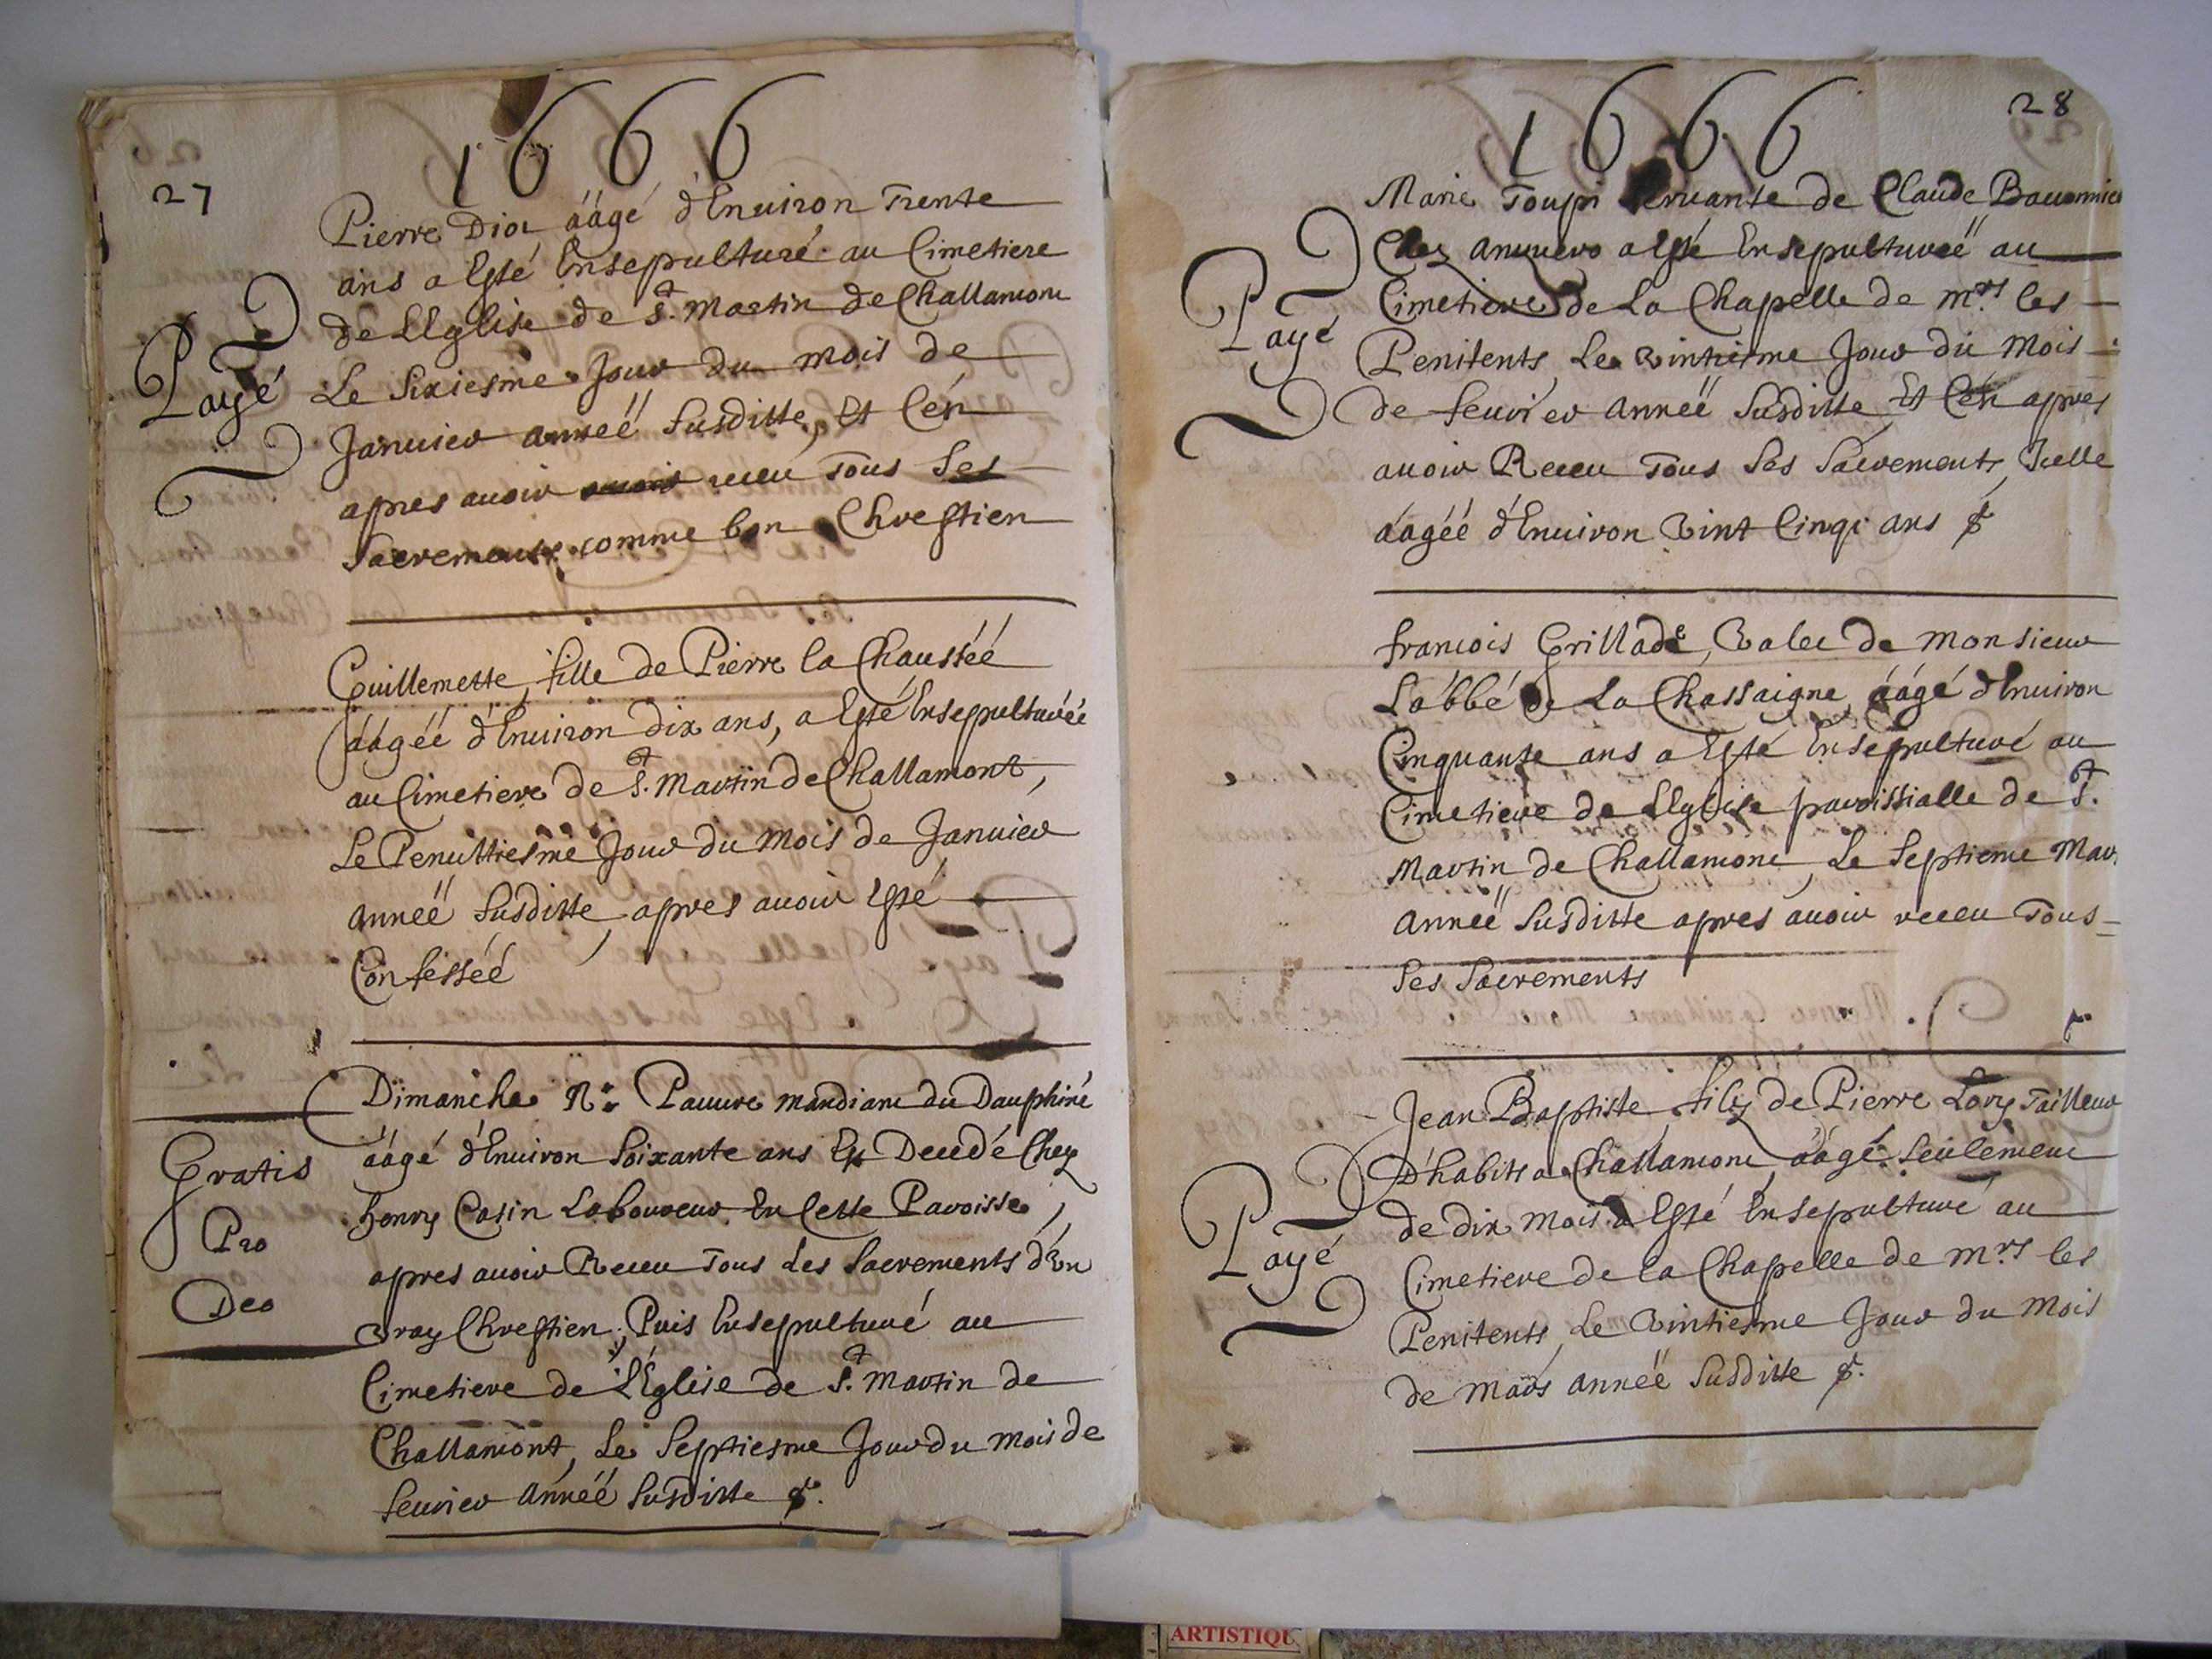 1666
27
Pierre Dior ääge d'Enuiron Trente
ans a Esté Ensepulturé au Cimetiere
de L'Eglise de St. Martin de Challamont
Payé
Le Sixiesme Jour du mois de
Januier anneë susditte, Et C'en
apres auoir receu Tous ses
Sacrements comme bon Chrestien
Guillemette, fille de Pierre la Chausséé
äágéé d'Enuiron dix ans, a Esté Ensepulturéé
au Cimetiere de St. Martin de Challamont,
Le Penultiesme Jour du Mois de Januier
anneë susditte, apres auoir Esté
Confésséé
Dimanche N. Pauure mandiant du Dauphiné
äágé d'Enuiron soixante ans Est Decedé Chez
Gratis
henry Casin Laboureur En Cette Paroisse,
Pro
apres auoir Receu Tous Les Sacrements d'Vn
Deo
Vray Chrestien, Puis Ensepulturé au
Cimetiere de L'Eglise de St. Martin de
Challamont, Le Septiesme Jour du mois de
feurier Annéé Susditte &.
1666
28
Marie Toupi seruante de Claude
Chez a Esté Ensepultureë au
Cimetiere de La Chapelle de mrs. les
Payé
Penitents, Le Vintiesme Jour du Mois
de feurier Anneë Susditte Et C'en apres
auoir Receu Tous Ses Sacrements, Icelle
äágéé d'Enuiron Vint Cinq ans &
francois Grillade, Valet de Monsieur
L'abbé de La Chassaigne, äágé d'Enuiron
Cinquante ans a Esté Ensepulturé au
Cimetiere de L'Eglise paroissialle de St.
Martin de Challamont, Le Septieme Mars
Anneë Susditte apres auoir receu Tous
Ses Sacrements
Jean Baptiste, fils de Pierre Lory Tailleur
D'habits a Challamont, äágé Seulement
de dix Mois a Esté Ensepulturé au
Payé
Cimetiere de la Chapelle de Mrs. les
Penitents, Le Vintiesme Jour du Mois
de mars anneë Susditte &.
ARTISTIQU